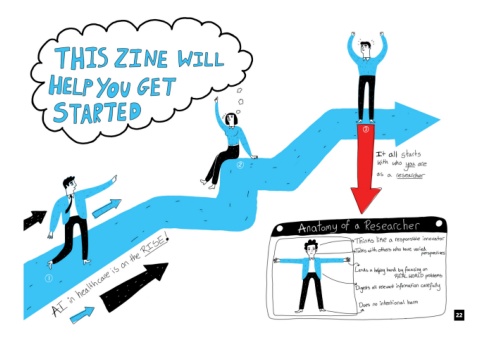 THIS ZINE WILL
HELP YOU GET
STARTED
3
It all starts
with who you are
as a researcher
2
1
AI in healthcare is on the RISE!
Anatomy of a Researcher
Thinks like a responsible innovator
Works with others who have varied
perspectives
Lends a helping hand by focusing on
REAL WORLD problems
Digests all relevant information carefully
Does no intentional harm
22